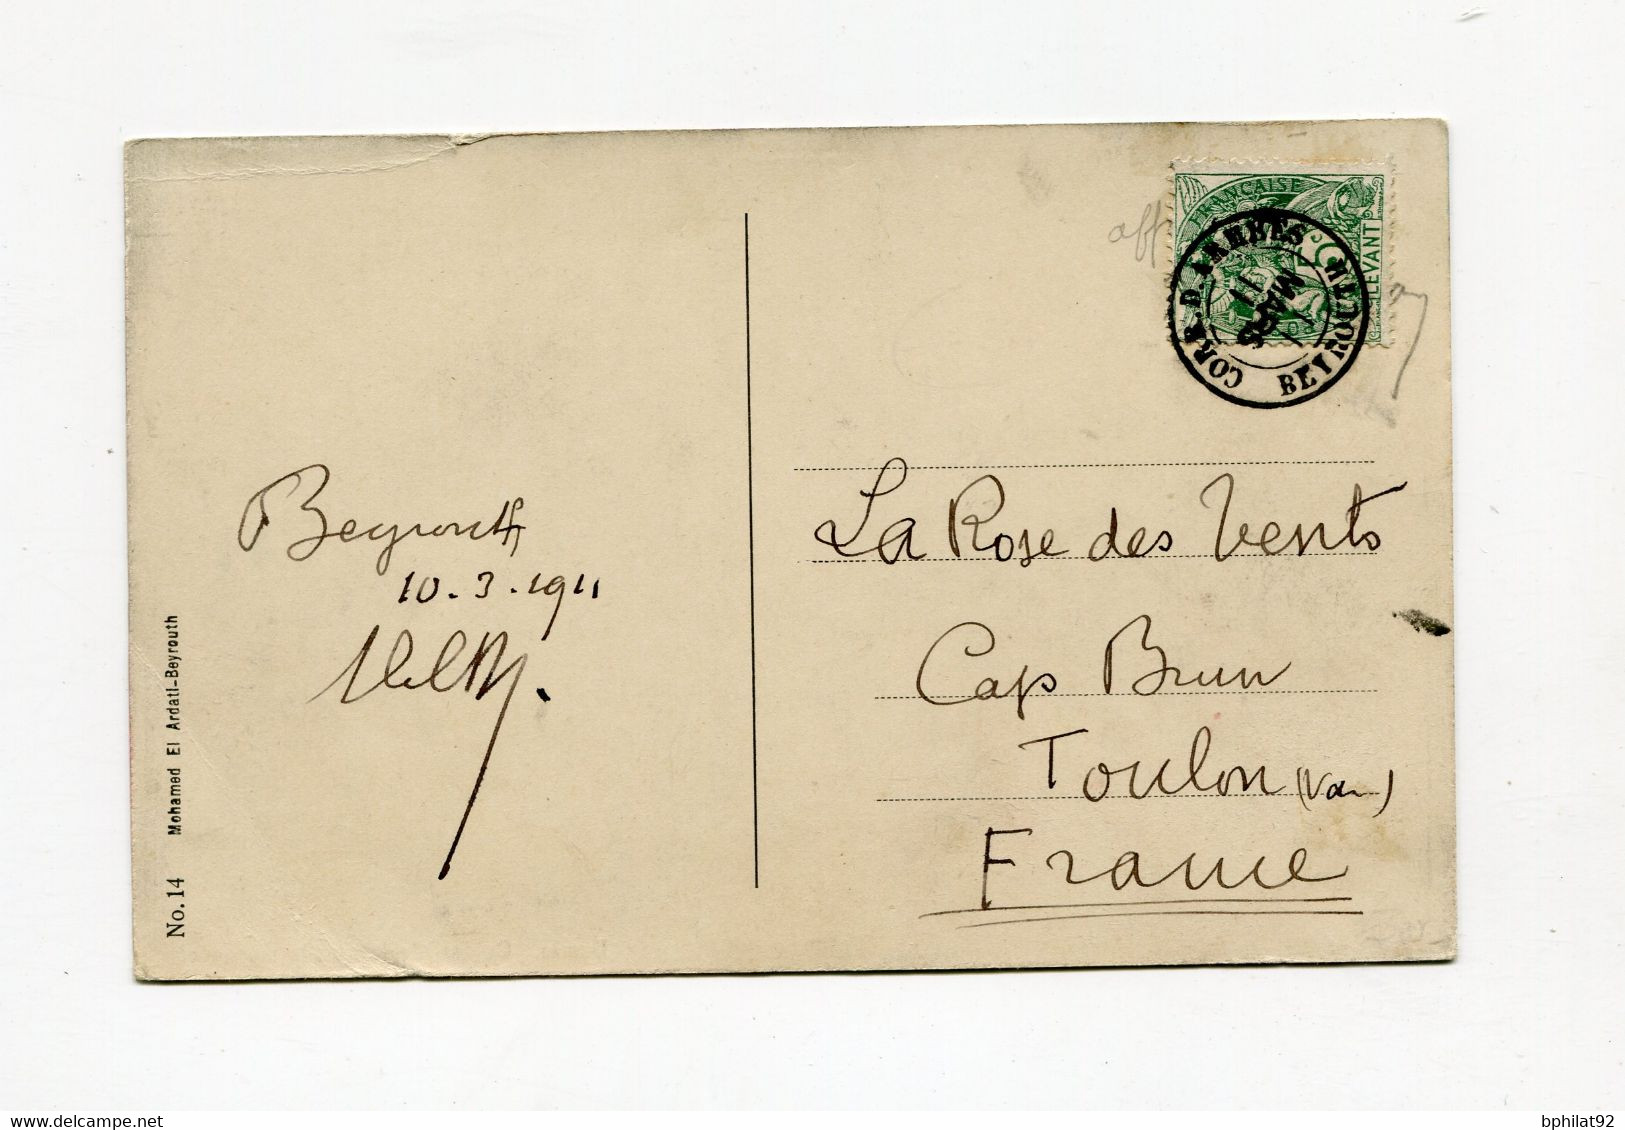 Beyrouth
10.3.1911
No. 14 Mohamed El Ardati-Beyrouth
FRANÇAISE
LEVANT
CORR. D. ARMEES
BEYROUTH
11
MARS
11
La Rose des Vents
Cap Brun
Toulon (Var)
France
www.delcampe.net
bphilat92